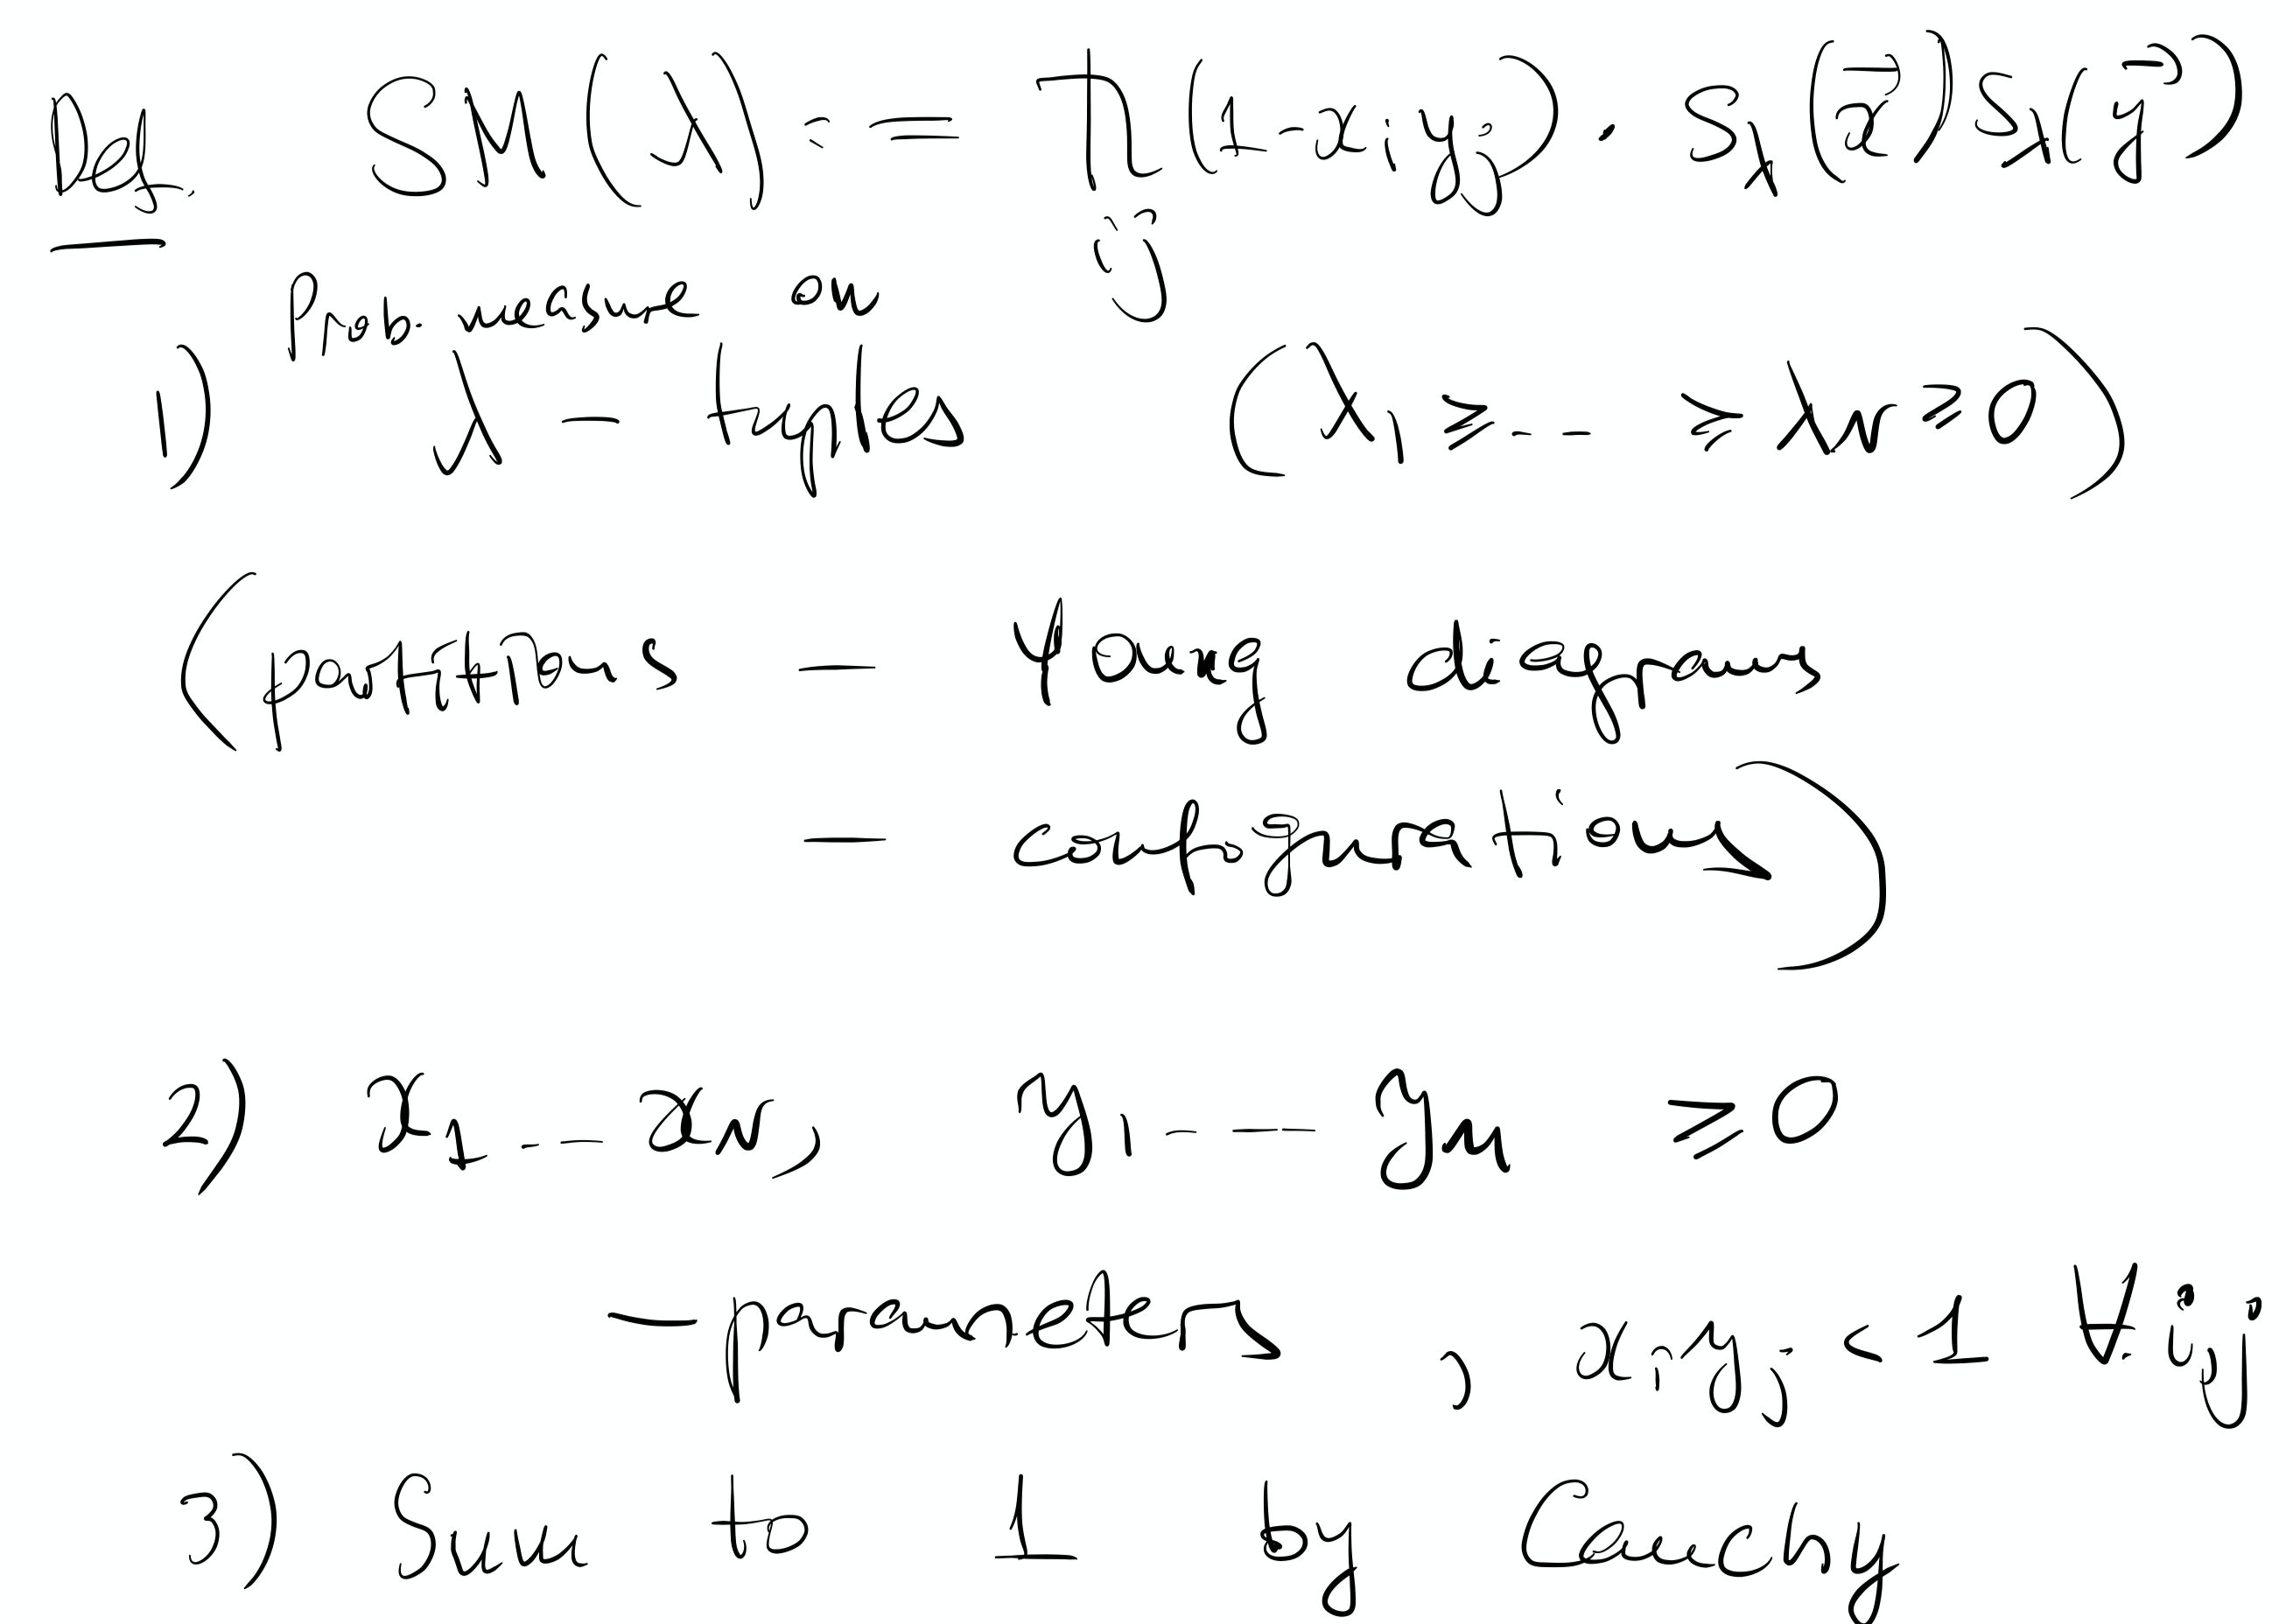 Def. SM(λ) := ∏ (1-x_i y_j) · s_λ(x⃗) s_λ(y⃗)
i,j
Prob. measure on
1) λ - tuples (λ_1 ≥ -- ≥ λ_n ≥ 0)
(partitions — Young diagrams
— configurations)
2) x_1 -- x_n, y_1 --- y_n ≥ 0
— parameters, x_i y_j < 1 ∀ i,j
3) Sum to 1 by Cauchy